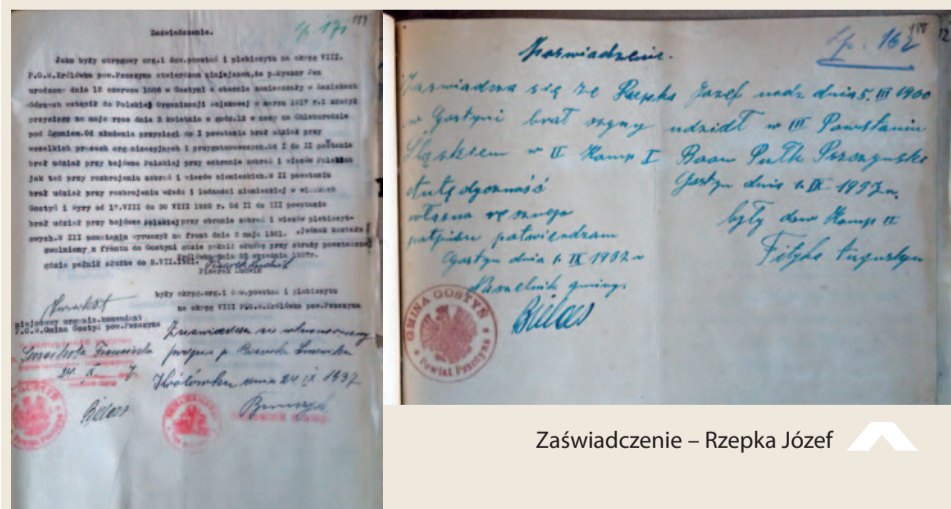 Sp. 171
Zaświadczenie.
Jako były okręgowy org.i dow.powstań i plebiscytu na okręg VIII.
P.O.W.Królówka pow.Pszczyna stwierdzam niniejszem,że p. Jan
urodzony dnia 18 czerwca 1886 w Gostyni a obecnie zamieszkały w Łaziskach
Górnych wstąpił do Polskiej Organizacji Wojskowej w marcu 1917 r.i złożył
przysięgę na moje ręce dnia 2 kwietnia o godz.12 w nocy na
pod Zgoniem.Od złożenia przysięgi do I powstania brał udział przy
wszelkich pracach organizacyjnych i przygotowawczych.Od I do II powstania
brał udział przy bojówce Polskiej przy ochronie zebrań i wieców Polskich
jak też przy rozbrojeniu zebrań i wieców niemieckich.W II powstaniu
brał udział przy rozbrojeniu władz i ludności niemieckiej w
Gostyń i Wyry od 17.VIII do 30 VIII 1920 r. Od II do III powstania
brał udział przy bojówce polskiej przy obronie zebrań i wieców plebiscyto-
wych.W III powstaniu wyruszył na front dnia 3 maja 1921. jednak został
zwolniony z frontu do Gostyni gdzie pełnił służbę przy straży powstańczej
gdzie pełnił służbę do 5.VII.1921.
Królówka dnia 23 września 1937r.
Pisarek Ludwik
były okręg.org.i dow.powstań i plebiscytu
na okręg VIII P.O.W.Królówka pow.Pszczyna
miejscowy organiz.komendant
P.O.W.Gmina Gostyń pow.Pszczyna
Franciszka
24. IX
Królówka dnia 24 IX 1937
Bielas
Sp. 162
188
Poświadczenie.
Zaświadcza się że Rzepka Józef urodz dnia 5. III 1900
w Gostyni brał czyny udzidł w III Powstaniu
Śląskiem w II Komp I Baon Pułk Pszczyński
Gostyn dnia 1. IX 1937 r.
własno ręcznego
podpisu potwierdzam
były dow Komp II
Gostyn dnia 1. IX 1937 r
Fityka Augustyn
Naczelnik gminy.
Bielas
GMINA GOSTYŃ
Powiat Pszczyna
Zaświadczenie – Rzepka Józef